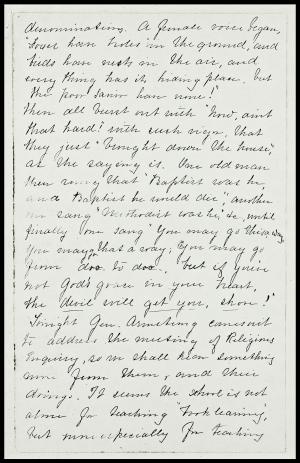 denominations. A female voice began,
"Foxes have holes in the ground, and
birds have nests in the air, and
every thing has its hiding place, but
the poor sinner have none!"
then all burst out with "Now, aint
that hard!" with such vigor, that
they just "brought down the house,"
as the saying is. One old man
then sung that "Baptist was he,
and Baptist he would die", another
one sang "Methodist was he," &c, until
finally one sang "You may go this a way
You may go that a way, You may go
from doo. to doo., but if you've
not God's grace in your heart,
the devil will get you, shore!"
Tonight Gen. Armstrong comes out
to address the meeting of Religious
Enquiry, so we shall hear something
more from them, and their
doings. It seems the school is not
alone for teaching "book learning",
but more especially for teaching